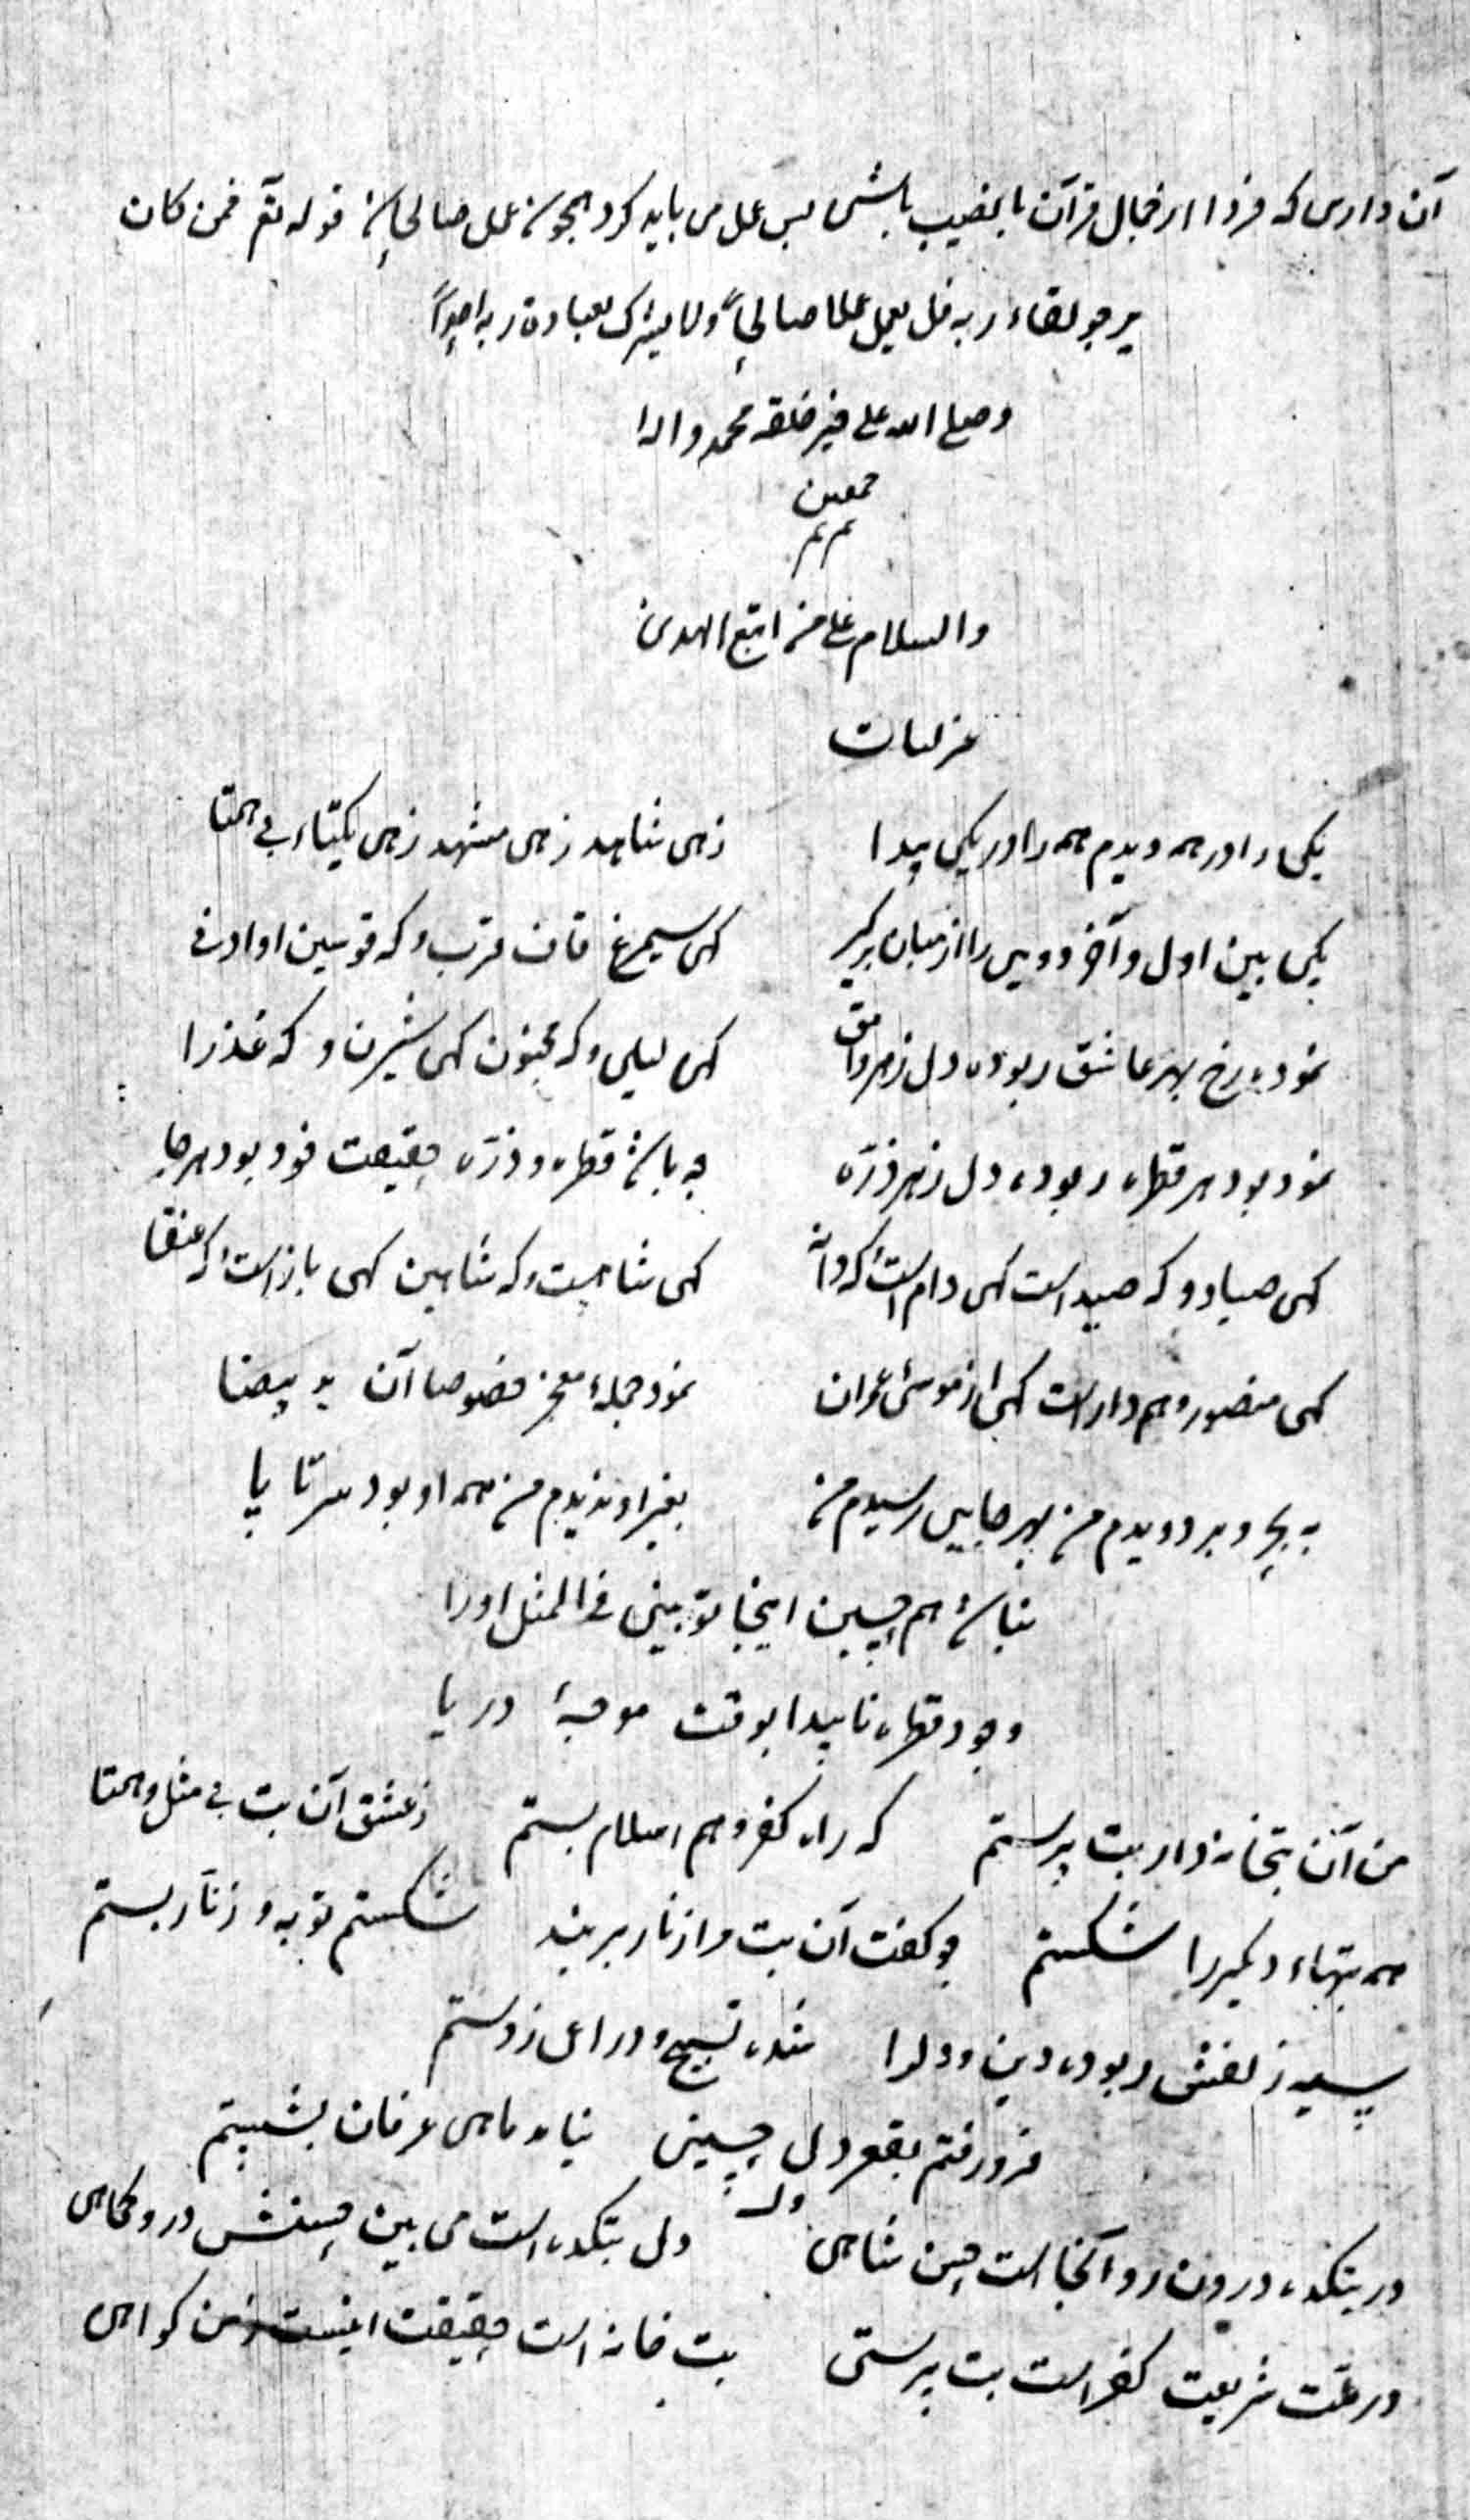 آن داری که فردا از جمال قرآن با نصیب باشی پس عمل می باید کرد همچون عمل صالحان قوله تعم فمن کان
یرجو لقاء ربه فل یعمل عملا صالحاً ولا یشرک بعبادة ربه احداً
وصلی الله علی خیر خلقه محمد واله ا
جمعین
والسلام علی من اتبع الهدی
غزلیات
یکی را در همه دیدم همه را در یکی پیدا زهی شاهد زهی مشهد زهی یکتاء بی همتا
یکی بین اول و آخر دویی را از میان برگیر کهی سیمرغ قاف قرب و که قوسین او ادنی
نموده رخ بهر عاشق ربوده دل ز هر وامق کهی لیلی و که مجنون کهی شیرن و که عذرا
نمود بود هر قطره ربوده دل ز هر ذرّه چه باشد قطره و ذرّه حقیقت خود بود هرجا
کهی صیاد و که صید است کهی دام است که دانه کهی شاهست و که شاهین کهی باز است که عنقا
کهی منصور و هم دار است کهی از موسی عمران نمود جمله معجز خصوصا آن ید بیضا
به بحر و بر دویدم من بهر جایی رسیدم من بغیر او ندیدم من همه او بود سر تا پا
نباشد هم حسین اینجا تو بینی فی المثل اورا
وجود قطره ناپیدا بوقت موجهٔ دریا
من آن بتخانه دار بت پرستم که راه کفر و هم اسلام بستم ز عشق آن بت بی مثل و همتا
همه بتهاء دیکیررا شکستم چو کفت آن بت مرا زنار بربند شکستم توبه و زنّار بستم
سیه زلفش ربوده دین و دلرا شده تسبیح و دراعی ز دستم
فرو رفتم بقعر دل حسینی نیامد ماهی عرفان بشستم
وله
در بتکده درون رو آنجا است حسن شاهی دل بتکده است می بین حسنش درو کماهی
در ملّت شریعت کفر است بت پرستی بت خانه است حقیقت اینست کواهی